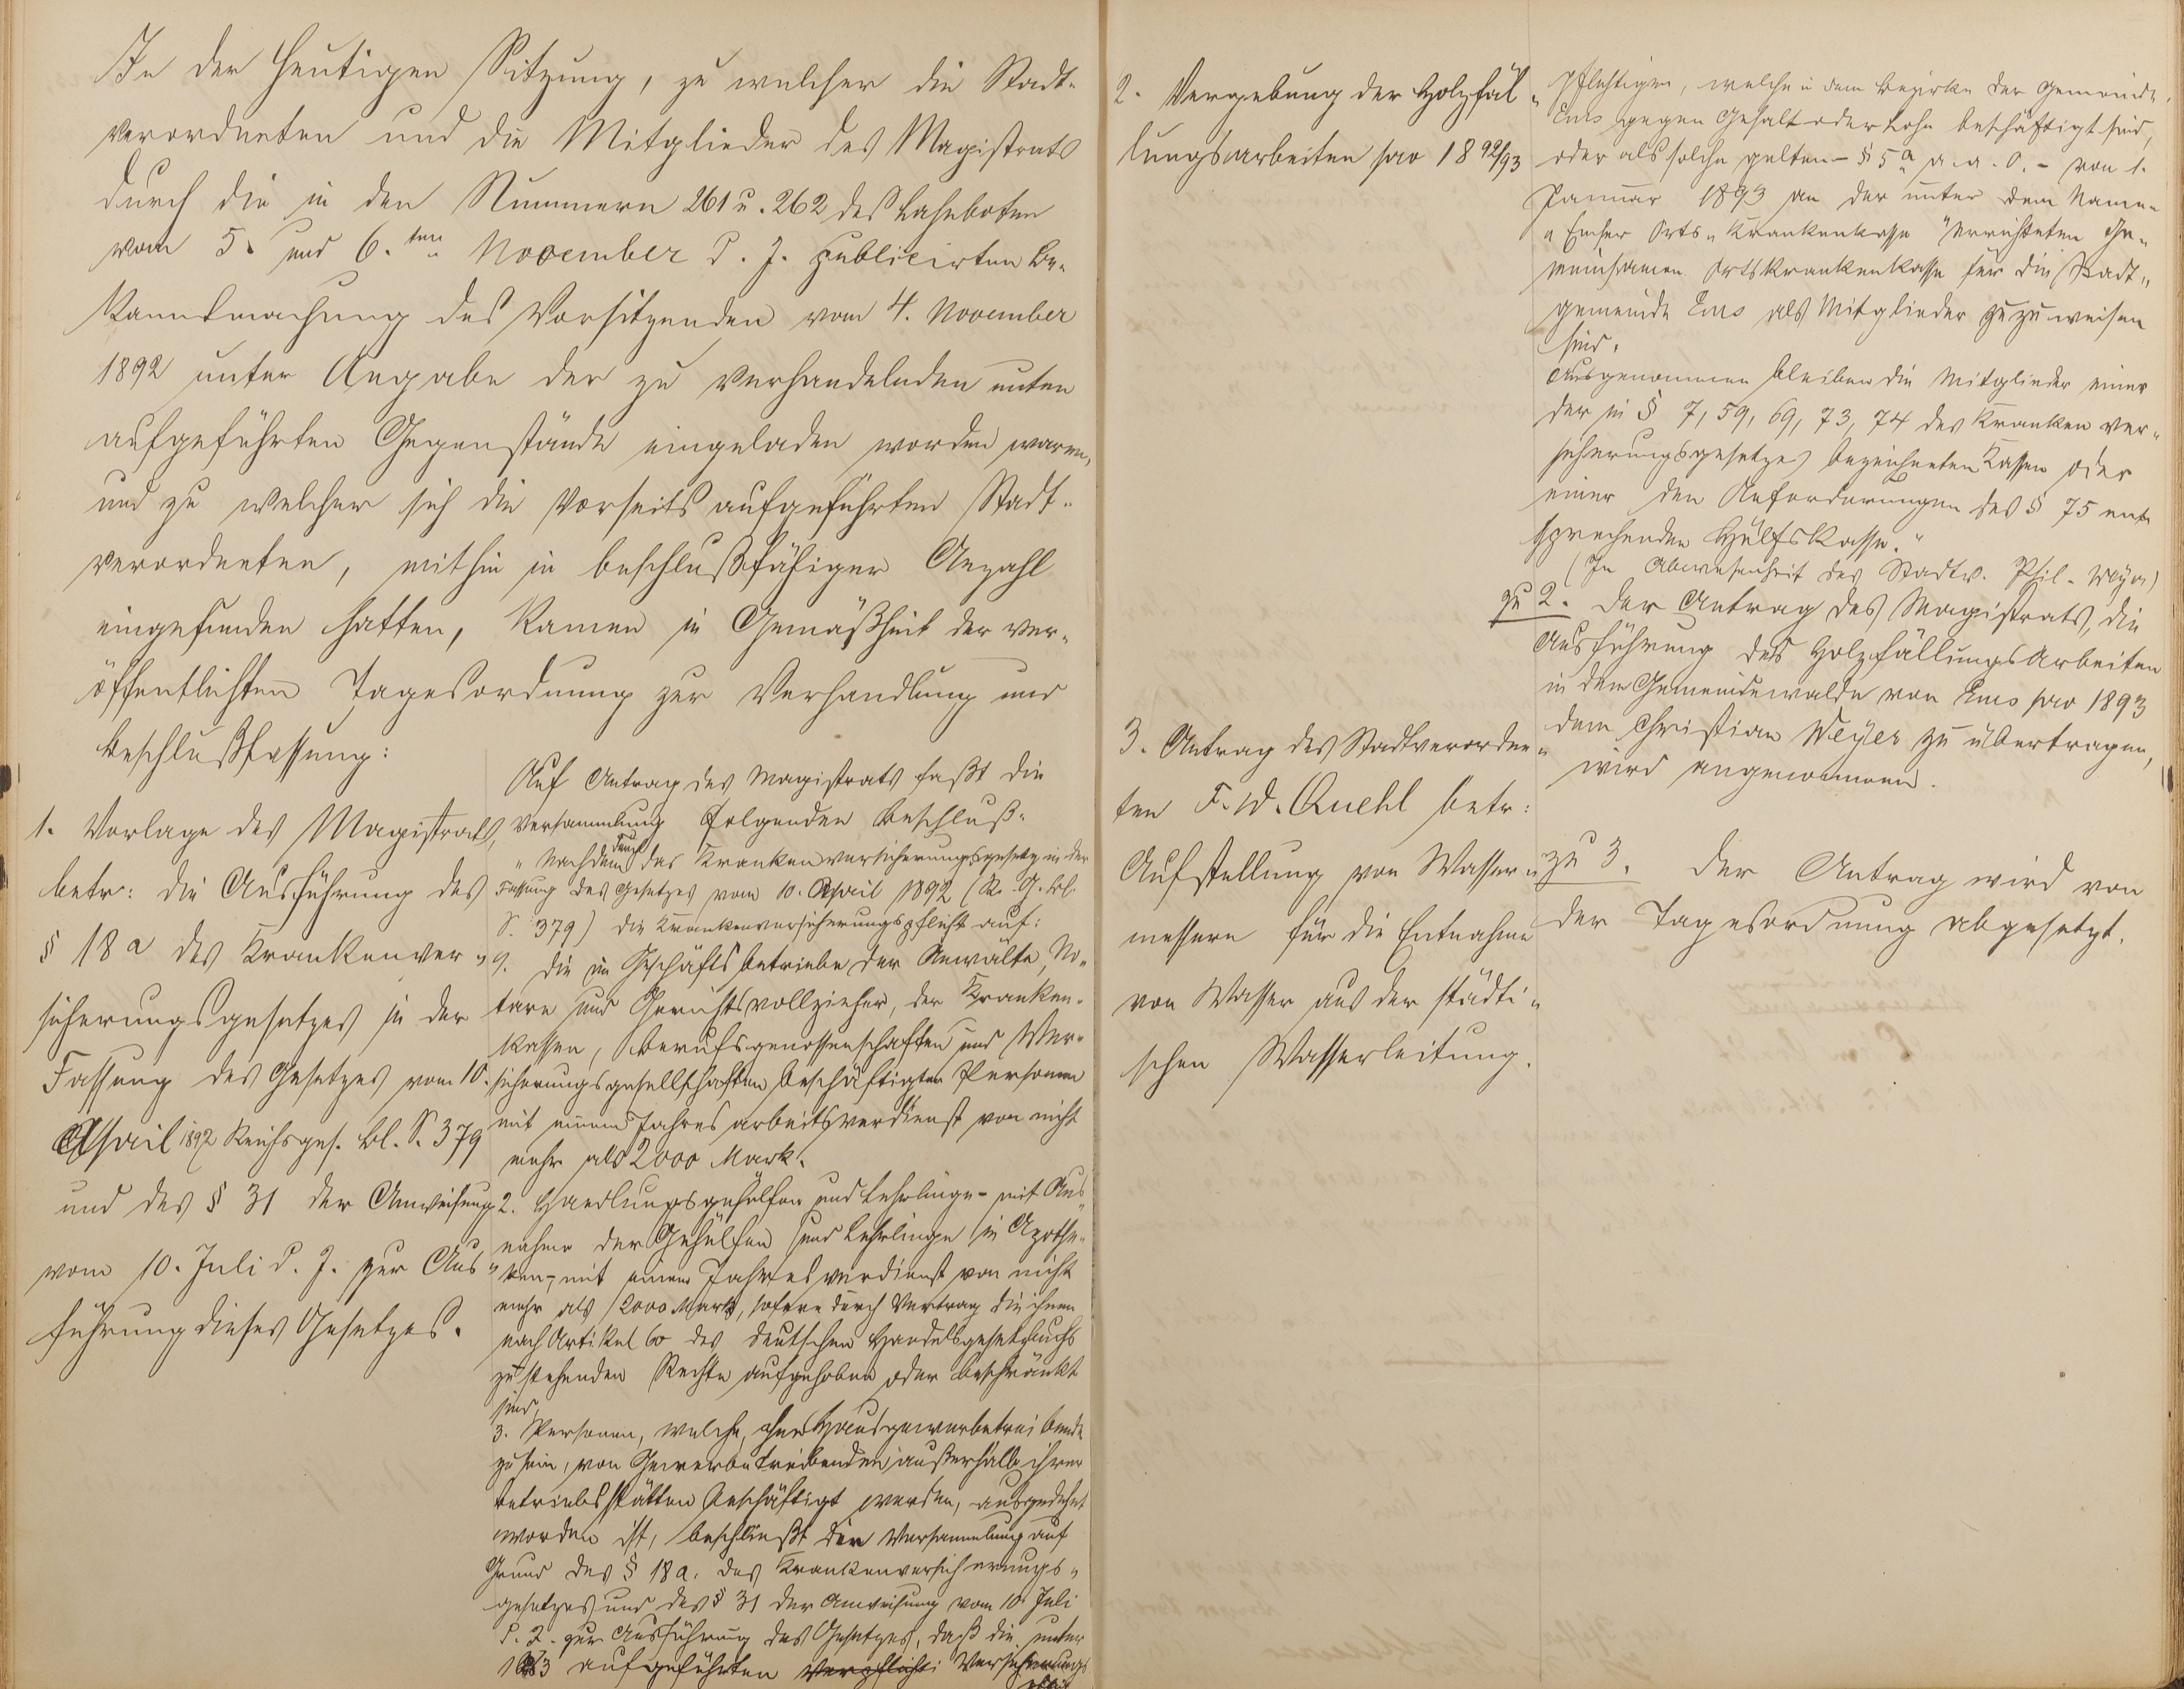 In der heutigen Sitzung, zu welcher die Stadt-
verordneten und die Mitglieder des Magistrats
durch die in den Nummern 261 u. 262 des Lahnboten
vom 5. und 6.ten November d. J. publicirten Be-
kanntmachung des Vorsitzenden vom 4. November
1892 unter Angabe der zu verhandelnden unten
aufgeführten Gegenstände eingeladen worden waren,
und zu welcher sich die vorseits aufgeführten Stadt-
verordneten, mithin in beschlußfähiger Anzahl
eingefunden hatten, kamen in Gemäßheit der ver-
öffentlichten Tagesordnung zur Verhandlung und
Beschlußfassung:
1. Vorlage des Magistrats,
betr: die Ausführung des
§ 18a des Krankenver-
sicherungsgesetzes in der
Fassung des Gesetzes vom 10.
April 1892 Reichsges. Bl. S. 379
und des § 31 der Anweisung
vom 10. Juli d. J. zur Aus-
führung dieses Gesetzes.
Auf Antrag des Magistrats faßt die
Versammlung folgenden Beschluß:
"Nachdem durch das Krankenversicherungsgesetz in der
Fassung des Gesetzes vom 10. April 1892 (R. G. Bl.
S. 379) die Krankenversicherungspflicht auf:
1. die im Geschäftsbetriebe der Anwälte, No-
tare und Gerichtsvollzieher, der Kranken-
kassen, Berufsgenossenschaften und Ver-
sicherungsgesellschaften beschäftigten Personen
mit einem Jahresarbeitsverdienst von nicht
mehr als 2000 Mark.
2. Handlungsgehülfen und Lehrlinge - mit Aus-
nahme der Gehülfen und Lehrlinge in Apothe-
ken, - mit einem Jahresverdienst von nicht
mehr als 2000 Mark, sofern durch Vertrag die ihnen
nach Artikel 60 des deutschen Handelsgesetzbuchs
zustehenden Rechte aufgehoben oder beschränkt
sind,
3. Personen, welche, ohne Hausgewerbetreibende
zu sein, von Gewerbetreibenden außerhalb ihrer
Betriebsstätten beschäftigt werden, ausgedehnt
worden ist, beschließt die Versammlung auf
Grund des § 18a. des Krankenversicherungs-
gesetzes und des § 31 der Anweisung vom 10. Juli
d. J. zur Ausführung des Gesetzes, daß die unter
1 3 aufgeführten verpflicht Versicherungs
2. Vergebung der Holzfäl-
lungsarbeiten pro 1892/93
3. Antrag des Stadtverordne-
ten F. W. Quehl betr:
Aufstellung von Wasser-
messern für die Entnahme
von Wasser aus der städti-
schen Wasserleitung.
pflichtigen, welche in dem Bezirke der Gemeinde
Ems gegen Gehalt oder Lohn beschäftigt sind,
oder als solche gelten - § 5a a. a. O. - von 1.
Januar 1893 an der unter dem Namen
"Emser Orts-Krankenkasse" errichteten Ge-
meinsamen Ortskrankenkasse für die Stadt-
gemeinde Ems als Mitglieder zuzuweisen
sind.
Ausgenommen bleiben die Mitglieder einer
der in § 7, 59, 69, 73, 74 des Krankenver-
sicherungsgesetzes bezeichneten Kassen oder
einer den Anforderungen des § 75 ent-
sprechenden Hülfskasse."
(In Abwesenheit des Stadtv. Phil.
zu 2. Der Antrag des Magistrats, die
Ausführung des Holzfällungsarbeiten
in dem Gemeindewalde von Ems pro 1893
dem Christian Weyer zu übertragen,
wird angenommen.
zu 3. Der Antrag wird von
der Tagesordnung abgesetzt.